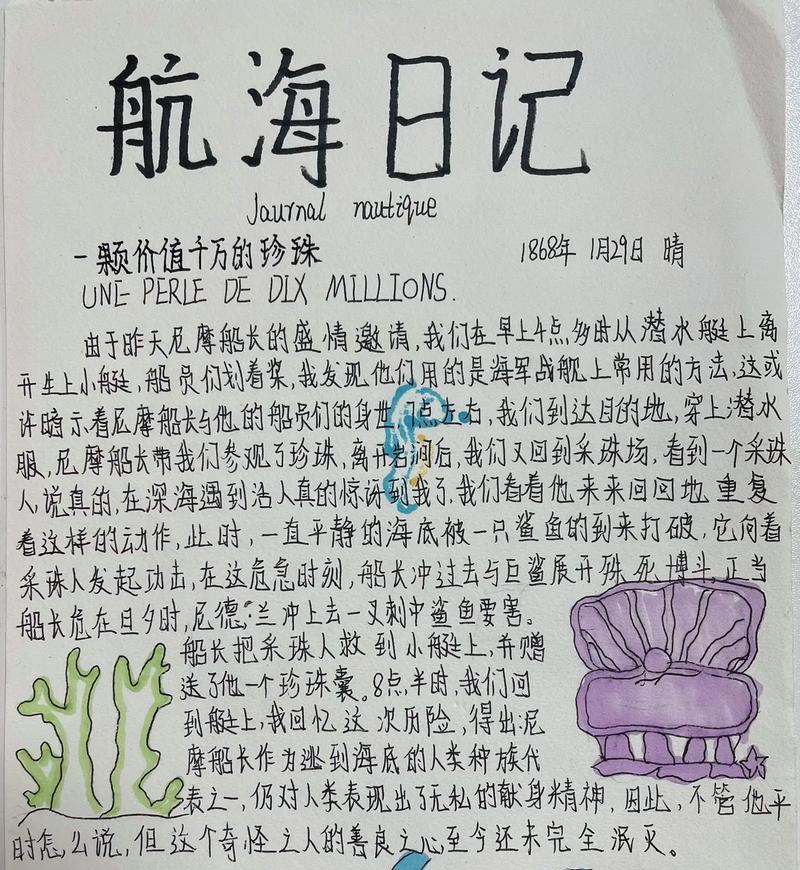 航海日记
Journal nautique
一颗价值千万的珍珠 1868年 1月29日 晴
UNE PERLE DE DIX MILLIONS.
由于昨天尼摩船长的盛情邀请,我们在早上4点多时从潜水艇上离
开坐上小艇,船员们划着桨,我发现他们用的是海军战舰上常用的方法,这或
许暗示着尼摩船长与他的船员们的身世,门点左右,我们到达目的地,穿上潜水
服,尼摩船长带我们参观了珍珠,离开岩洞后,我们又回到采珠场,看到一个采珠
人,说真的,在深海遇到活人真的惊讶到我了,我们看着他来来回回地重复
着这样的动作,此时,一直平静的海底被一只鲨鱼的到来打破,它向着
采珠人发起功击,在这危急时刻,船长冲过去与巨鲨展开殊死搏斗,正当
船长危在旦夕时,尼德·兰冲上去一叉刺中鲨鱼要害。
船长把采珠人救到小艇上,并赠
送了他一个珍珠囊。8点半时,我们回
到艇上,我回忆这次历险,得出:尼
摩船长作为逃到海底的人类种族代
表之一,仍对人类表现出了无私的献身精神,因此,不管他平
时怎么说,但这个奇怪之人的善良之心至今还未完全泯灭。